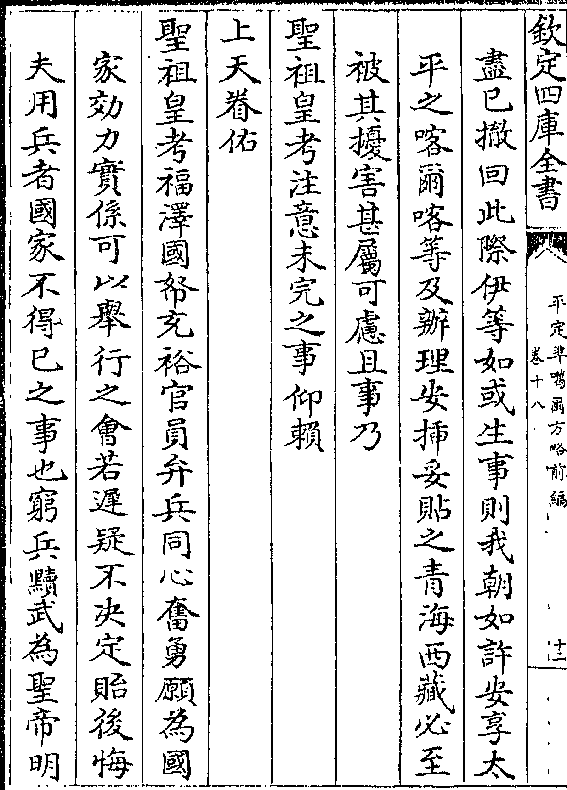 欽定四庫全書
平定準噶爾方略前編
卷十八
十二
盡已撤回此際伊等如或生事則我朝如許安享太
平之喀爾喀等及辦理安揷妥貼之青海西藏必至
被其擾害甚屬可慮且事乃
聖祖皇考注意未完之事仰賴
上天眷佑
聖祖皇考福澤國帑充裕官員弁兵同心奮勇願為國
家効力實係可以舉行之會若遲疑不决定貽後悔
夫用兵者國家不得已之事也窮兵黷武為聖帝明